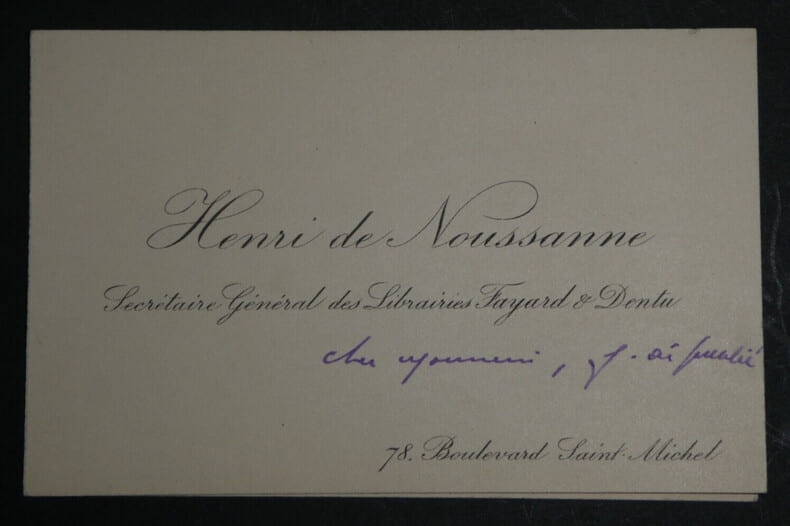 Henri de Noussanne
Secrétaire Général des Librairies Fayard & Dentu
cher , j'ai publié
78. Boulevard Saint-Michel